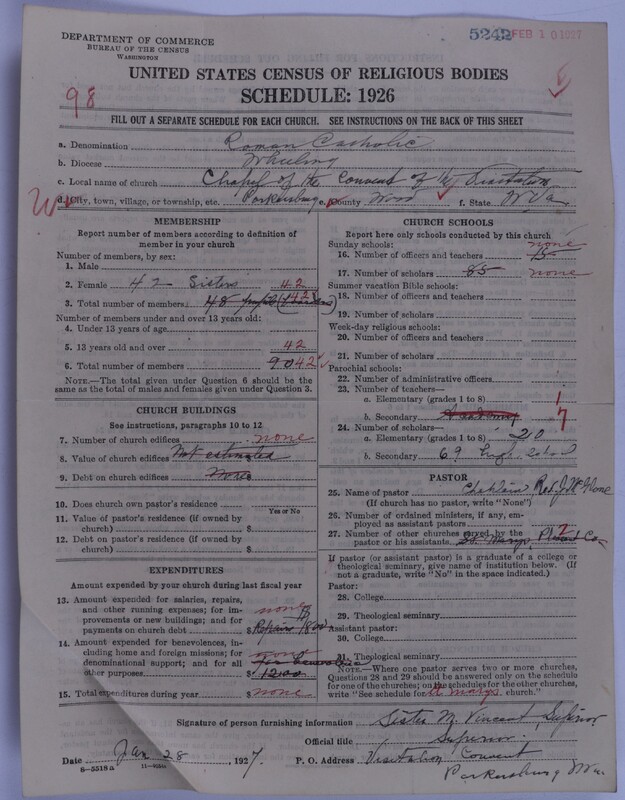 DEPARTMENT OF COMMERCE
BUREAU OF THE CENSUS
WASHINGTON
5242 FEB 10 1927
UNITED STATES CENSUS OF RELIGIOUS BODIES
SCHEDULE: 1926
98
FILL OUT A SEPARATE SCHEDULE FOR EACH CHURCH. SEE INSTRUCTIONS ON THE BACK OF THIS SHEET
a. Denomination Roman Catholic
b. Diocese Wheeling
c. Local name of church Chapel of the Convent of the Visitation
d. City, town, village, or township, etc. Parkersburg e. County Wood f. State W Va.
MEMBERSHIP
Report number of members according to definition of member in your church
Number of members, by sex:
1. Male
2. Female 42 Sisters 42
3. Total number of members 48 pupils
Number of members under and over 13 years old:
4. Under 13 years of age
5. 13 years old and over 42
6. Total number of members 90 42
NOTE.—The total given under Question 6 should be
same as the total of males and females given under Question 3.
CHURCH BUILDINGS
See instructions, paragraphs 10 to 12
7. Number of church edifices none
8. Value of church edifices Not estimated
9. Debt on church edifices None
10. Does church own pastor's residence
Yes or No
11. Value of pastor's residence (if owned by
church) $
12. Debt on pastor's residence (if owned by
church) $
EXPENDITURES
Amount expended by your church during last fiscal year
13. Amount expended for salaries, repairs,
and other running expenses; for im-
provements or new buildings; and for
payments on church debt none $ Repairs 1800
14. Amount expended for benevolences, in-
cluding home and foreign missions; for
denominational support; and for all
other purposes none $ 1200
15. Total expenditures during year $ none
CHURCH SCHOOLS
Report here only schools conducted by this church
Sunday schools: none
16. Number of officers and teachers 15
17. Number of scholars 85 none
Summer vacation Bible schools:
18. Number of officers and teachers
19. Number of scholars
Week-day religious schools:
20. Number of officers and teachers
21. Number of scholars
Parochial schools:
22. Number of administrative officers
23. Number of teachers—
a. Elementary (grades 1 to 8) 1
b. Secondary Academy 7
24. Number of scholars—
a. Elementary (grades 1 to 8) 20
b. Secondary 69 high school
PASTOR
25. Name of pastor Chaplain Rev. J.
(If church has no pastor, write "None")
26. Number of ordained ministers, if any, em-
ployed as assistant pastors
27. Number of other churches served by the 2
pastor or his assistants St. Marys, Co
If pastor (or assistant pastor) is a graduate of a college or
theological seminary, give name of institution below. (If
not a graduate, write "No" in the space indicated.)
Pastor:
28. College
29. Theological seminary
Assistant pastor:
30. College
31. Theological seminary
NOTE.—Where one pastor serves two or more churches,
Questions 28 and 29 should be answered only on the schedule
for one of the churches; on the schedules for the other churches,
write "See schedule for St marys church."
Signature of person furnishing information Sister M. Vincent, Superior
Official title Superior.
Date Jan 28, 1927. P. O. Address Visitation Convent
8-5518a Parkersburg W Va.